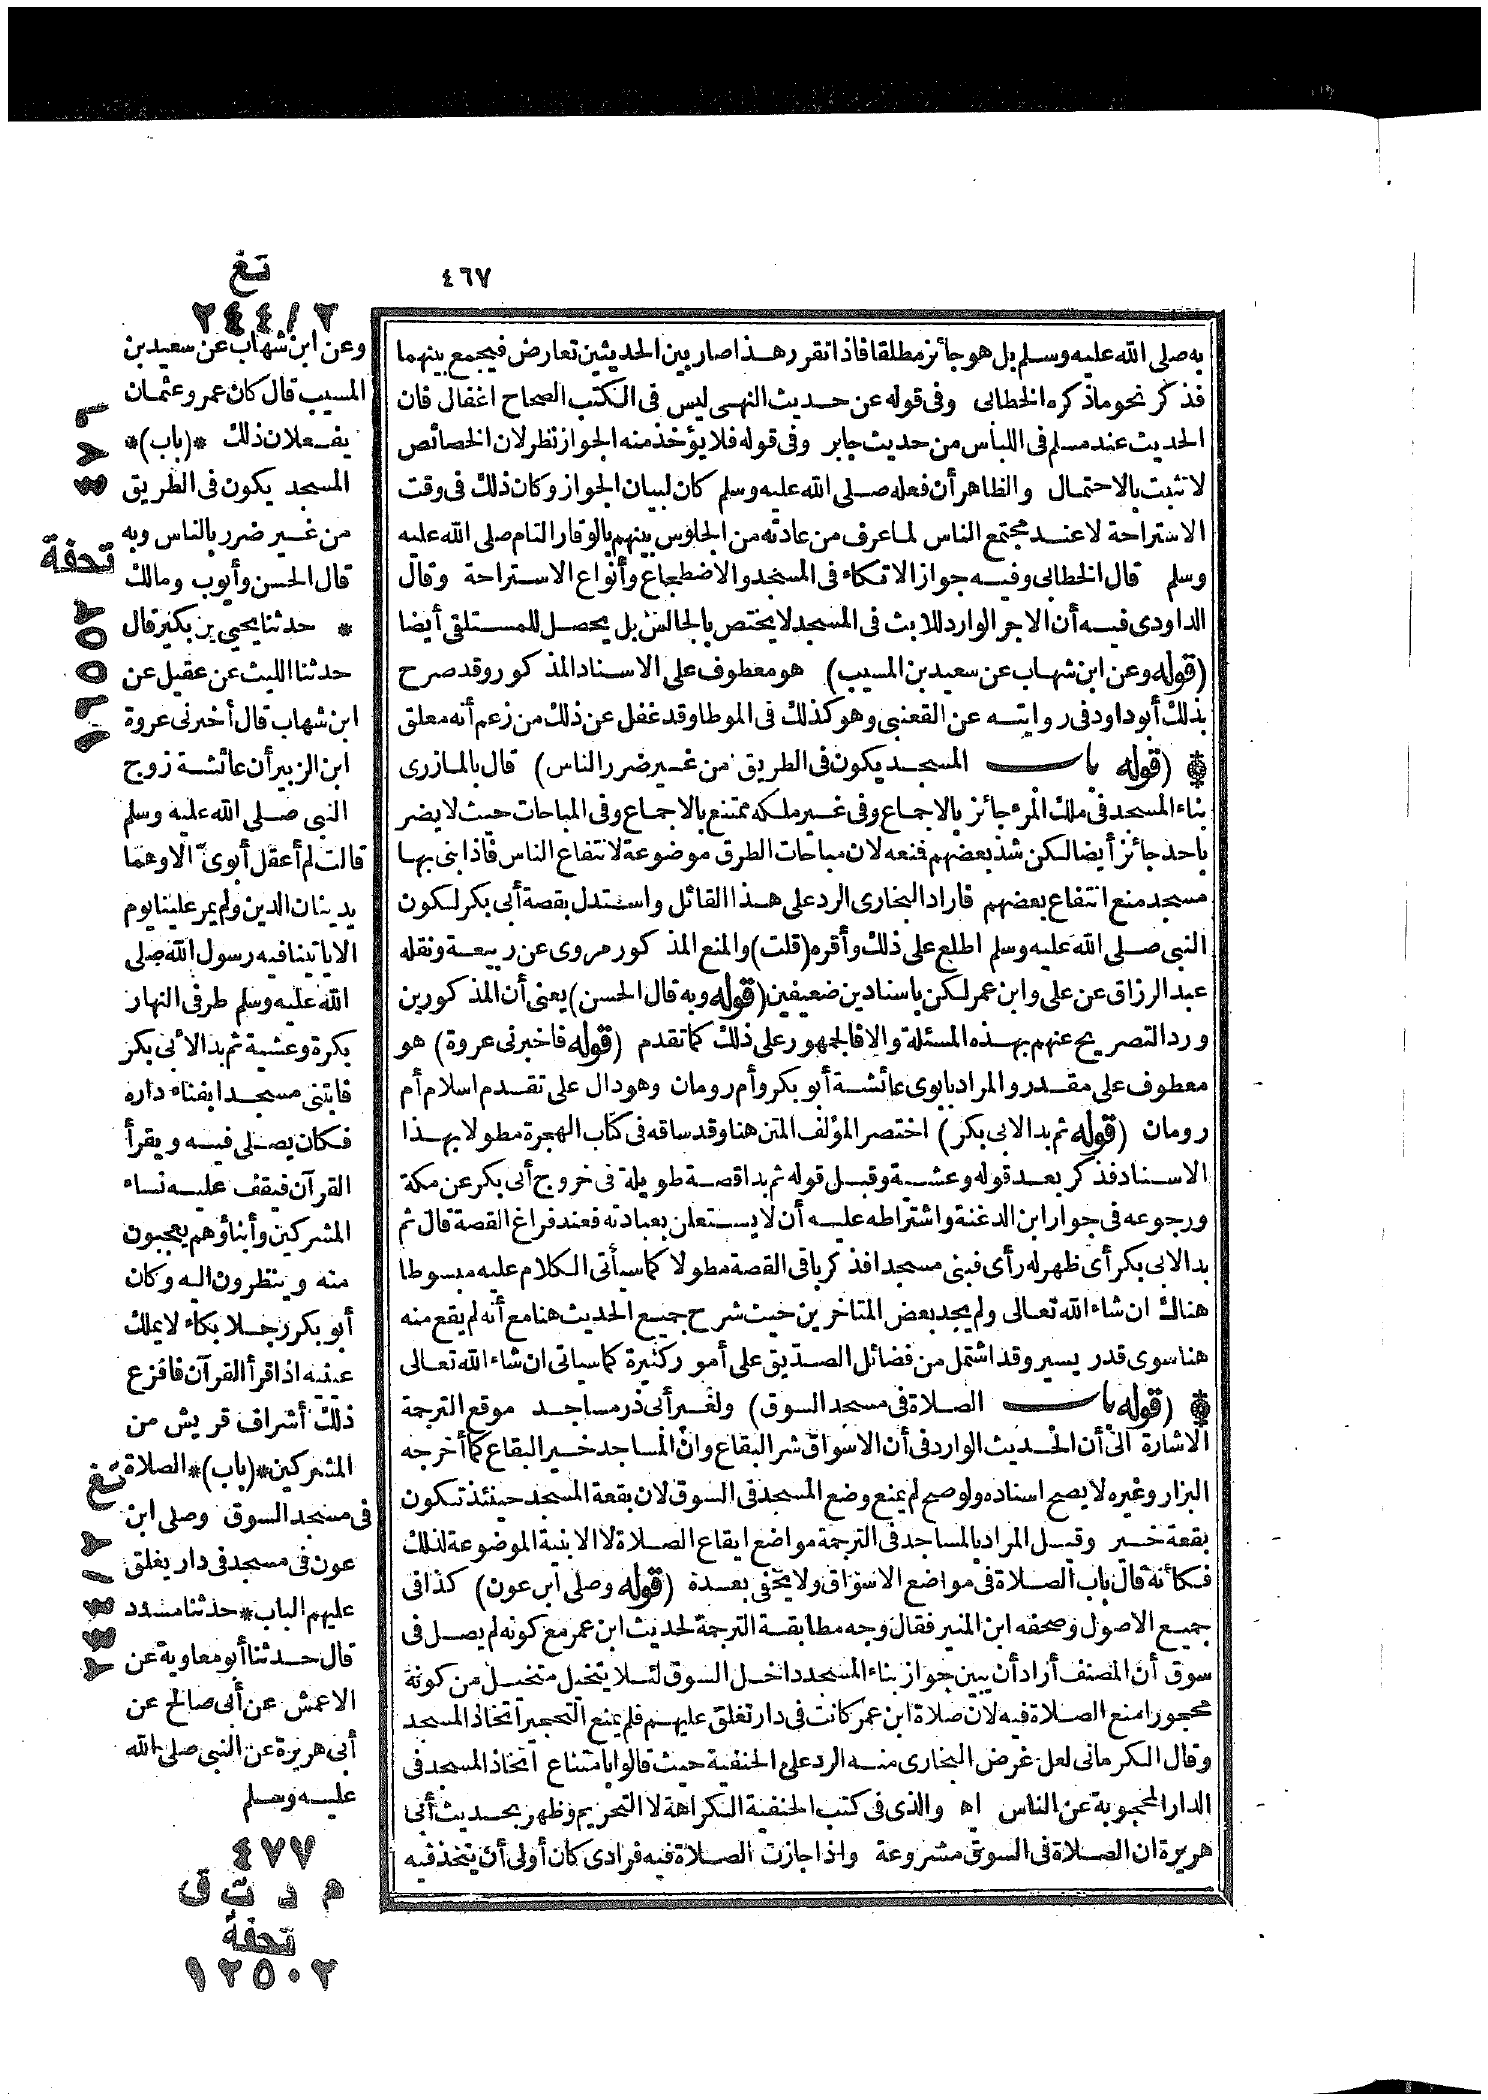 ٤٦٧
به صلى الله عليه وسلم بل هو جائز مطلقا فاذا تقرر هذا صار بين الحديثين تعارض فيجمع بينهما
فذكر نحو ما ذكره الخطابى وفى قوله عن حديث النهى ليس فى الكتب الصحاح اغفال فان
الحديث عند مسلم فى اللباس من حديث جابر وفى قوله فلا يؤخذ منه الجواز نظر لان الخصائص
لا تثبت بالاحتمال والظاهر أن فعله صلى الله عليه وسلم كان لبيان الجواز وكان ذلك فى وقت
الاستراحة لا عند مجتمع الناس لما عرف من عادته من الجلوس بينهم بالوقار التام صلى الله عليه
وسلم قال الخطابى وفيه جواز الاتكاء فى المسجد والاضطجاع وأنواع الاستراحة وقال
الداودى فيه أن الاجر الوارد للابث فى المسجد لا يختص بالجالس بل يحصل للمستلقى أيضا
(قوله وعن ابن شهاب عن سعيد بن المسيب) هو معطوف على الاسناد المذكور وقد صرح
بذلك أبو داود فى روايته عن القعنبى وهو كذلك فى الموطا وقد غفل عن ذلك من زعم أنه معلق
* (قوله باب المسجد يكون فى الطريق من غير ضرر الناس) قال بالمازرى
بناء المسجد فى ملك المرء جائز بالاجماع وفى غير ملكه ممتنع بالاجماع وفى المباحات حيث لا يضر
باحد جائز أيضا لكن شذ بعضهم فنعه لان مباحات الطرق موضوعة لانتفاع الناس فاذا بنى بها
مسجد منع انتفاع بعضهم فاراد البخارى الرد على هذا القائل واستدل بقصة أبى بكر لكون
النبى صلى الله عليه وسلم اطلع على ذلك وأقره (قلت) والمنع المذكور مروى عن ربيعة ونقله
عبد الرزاق عن على وابن عمر لكن باسنادين ضعيفين (قوله وبه قال الحسن) يعنى أن المذكورين
ورد التصريح عنهم بهذه المسئلة والا فالجمهور على ذلك كما تقدم (قوله فاخبرنى عروة) هو
معطوف على مقدر والمراد بابوى عائشة أبو بكر وأم رومان وهو دال على تقدم اسلام أم
رومان (قوله ثم بدا لابى بكر) اختصر المؤلف المتن هنا وقد ساقه فى كتاب الهجرة مطولا بهذا
الاسناد فذكر بعد قوله وعشية وقبل قوله ثم بدا قصة طويلة فى خروج أبى بكر عن مكة
ورجوعه فى جوار ابن الدغنة واشتراطه عليه أن لا يستعلن بعبادته فعند فراغ القصة قال ثم
بدا لابى بكر أى ظهر له رأى فبنى مسجدا فذكر باقى القصة مطولا كما سيأتى الكلام عليه مبسوطا
هناك ان شاء الله تعالى ولم يجد بعض المتاخرين حيث شرح جميع الحديث هنا مع أنه لم يقع منه
هنا سوى قدر يسير وقد اشتمل من فضائل الصديق على أمور كثيرة كما سياتى ان شاء الله تعالى
* (قوله باب الصلاة فى مسجد السوق) ولغير أبى ذر مساجد موقع الترجمة
الاشارة الى أن الحديث الوارد فى أن الاسواق شر البقاع وان المساجد خير البقاع كما أخرجه
البزار وغيره لا يصح اسناده ولو صح لم يمنع وضع المسجد فى السوق لان بقعة المسجد حينئذ تكون
بقعة خير وقيل المراد بالمساجد فى الترجمة مواضع ايقاع الصلاة لا الابنية الموضوعة لذلك
فكأنه قال باب الصلاة فى مواضع الاسواق ولا يخفى بعده (قوله وصلى ابن عون) كذا فى
جميع الاصول وصحفه ابن المنير فقال وجه مطابقة الترجمة لحديث ابن عمر مع كونه لم يصل فى
سوق أن المصنف أراد أن يبين جواز بناء المسجد داخل السوق لئلا يتخيل متخيل من كونه
محجورا منع الصلاة فيه لان صلاة ابن عمر كانت فى دار تغلق عليهم فلم يمنع التحجير اتخاذ المسجد
وقال الكرمانى لعل غرض البخارى منه الرد على الحنفية حيث قالوا بامتناع اتخاذ المسجد فى
الدار المحجوبة عن الناس اه والذى فى كتب الحنفية الكراهة لا التحريم وظهر بحديث أبى
هريرة ان الصلاة فى السوق مشروعة واذا جازت الصلاة فيه فرادى كان أولى أن يتخذ فيه
تغ
٢٤٤/٢
وعن ابن شهاب عن سعيد بن
المسيب قال كان عمر وعثمان
يفعلان ذلك *(باب)*
المسجد يكون فى الطريق
من غير ضرر بالناس وبه
قال الحسن وأيوب ومالك
* حدثنا يحيى بن بكير قال
حدثنا الليث عن عقيل عن
ابن شهاب قال أخبرنى عروة
ابن الزبير أن عائشة زوج
النبى صلى الله عليه وسلم
قالت لم أعقل أبوىّ الا وهما
يدينان الدين ولم يمر علينا يوم
الا ياتينا فيه رسول الله صلى
الله عليه وسلم طرفى النهار
بكرة وعشية ثم بدا لأبى بكر
فابتنى مسجدا بفناء داره
فكان يصلى فيه ويقرأ
القرآن فيقف عليه نساء
المشركين وأبناؤهم يعجبون
منه وينظرون اليه وكان
أبو بكر رجلا بكاء لا يملك
عينيه اذا قرأ القرآن فافزع
ذلك أشراف قريش من
المشركين *(باب)* الصلاة
فى مسجد السوق وصلى ابن
عون فى مسجد فى دار يغلق
عليهم الباب * حدثنا مسدد
قال حدثنا أبو معاوية عن
الاعمش عن أبى صالح عن
أبى هريرة عن النبى صلى الله
عليه وسلم
٤٧٧
م د ت ق
تحفة
١٢٥٠٢
تحفة
١٦٥٥٢
تغ